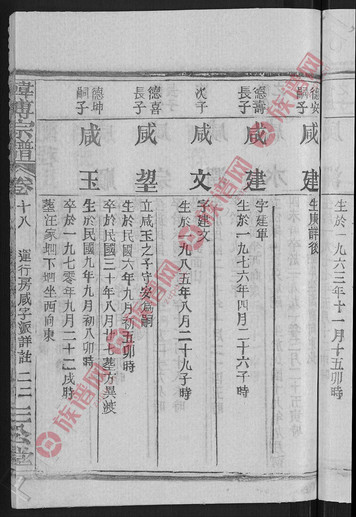 德安
嗣子
咸建
生庚詳後
生於一九六三年十一月十五卯時
德濤
長子
咸建
字建軍
生於一九七六年四月二十六子時
次子
咸文
字建文
生於一九八五年八月二十九子時
德喜
長子
咸望
立咸玉之子守安爲嗣
生於民國六年九月初五卯時
卒於民國三十年八月廿七墓方異渡
德坤
嗣子
咸玉
生於民國九年九月初八卯時
卒於一九七零年九月二十二戌時
墓汪家圳下坝坐西向東
韓氏宗譜
卷十八
運行房咸字派詳註
二二三
族谱网